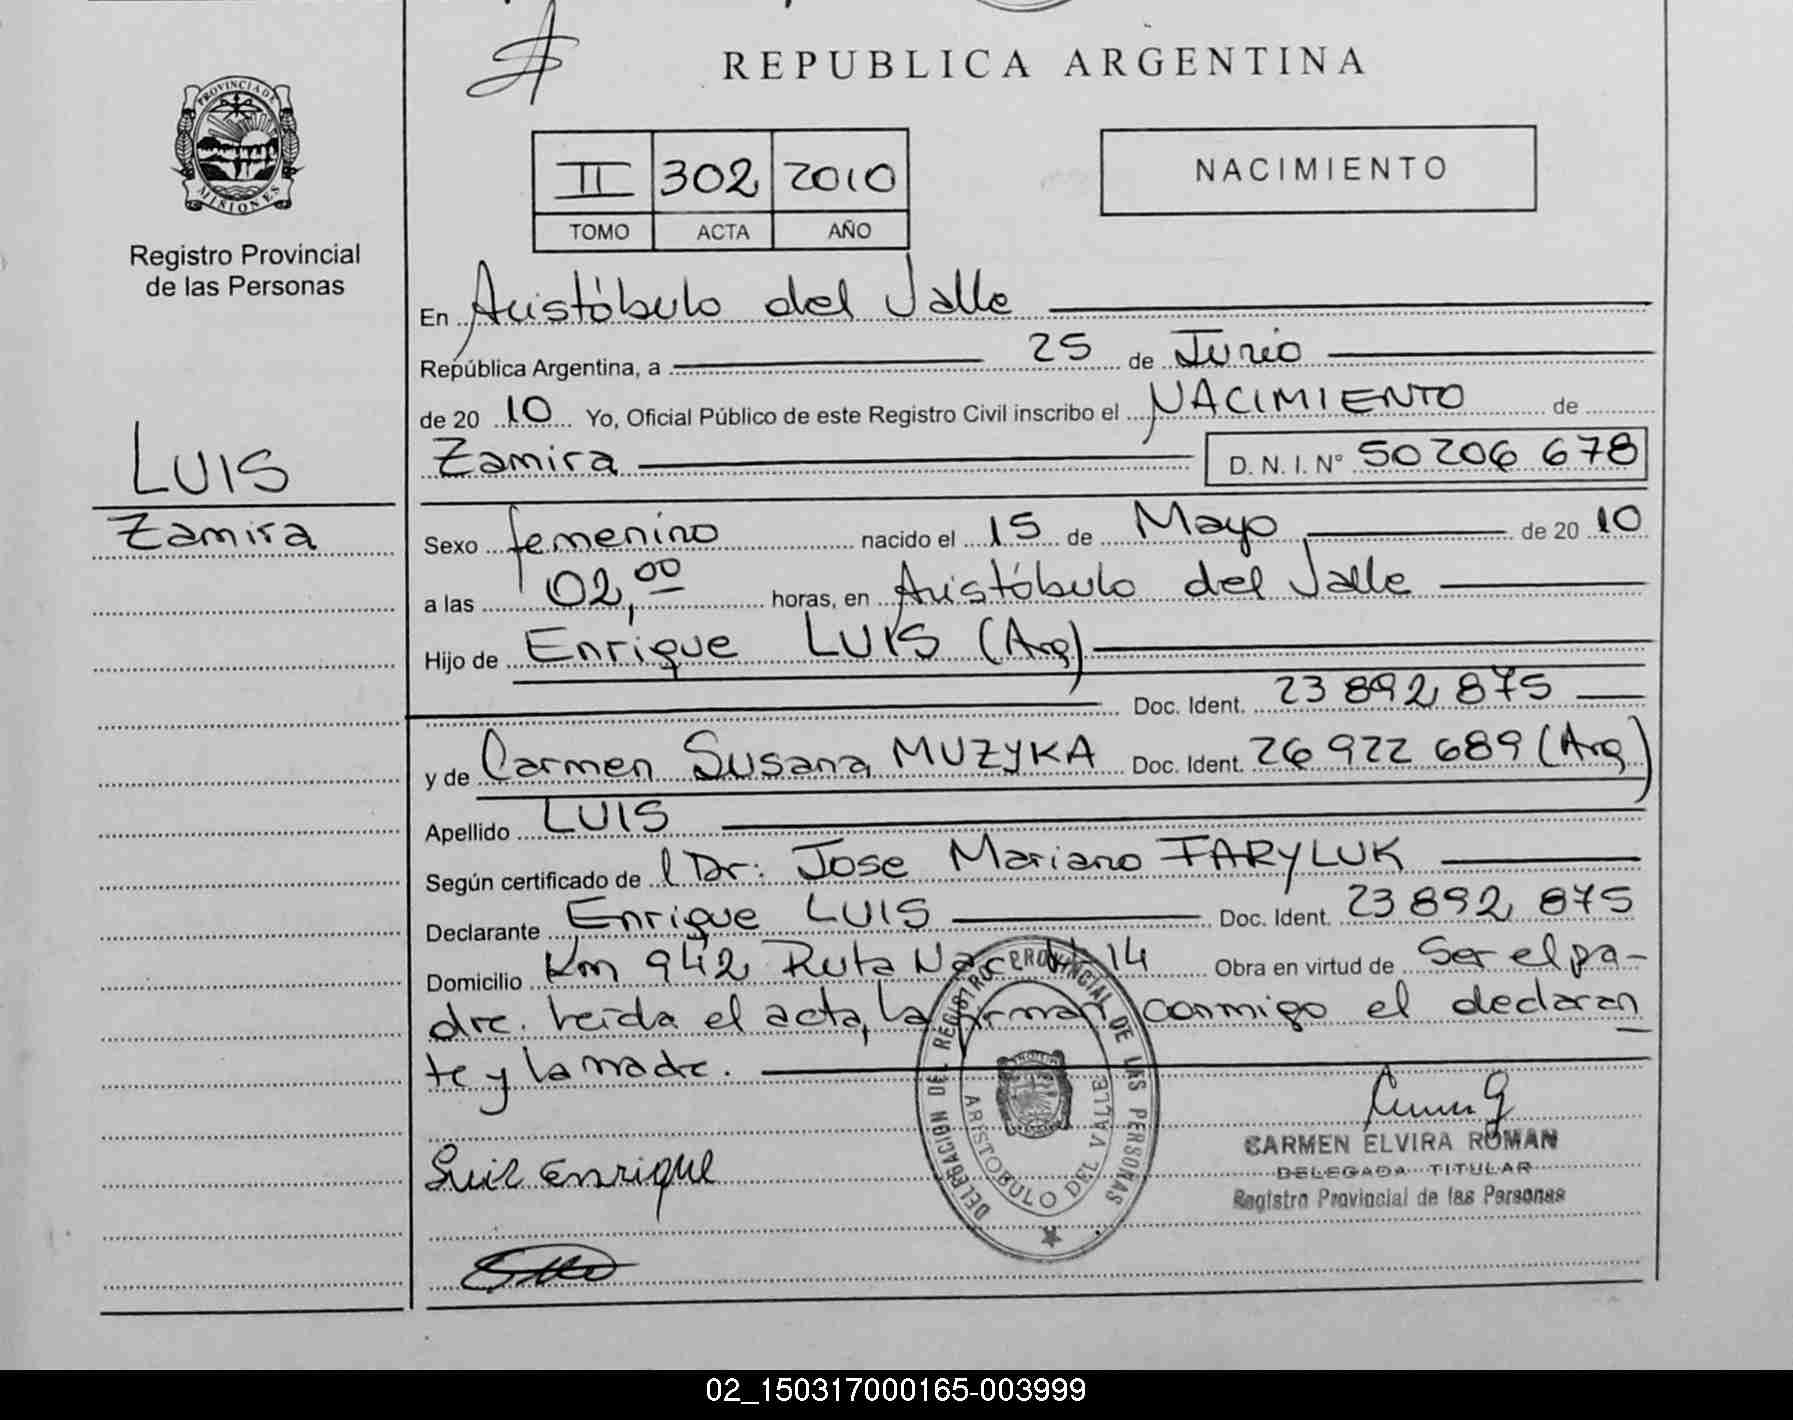 REPUBLICA ARGENTINA
PROVINCIA DE MISIONES
Registro Provincial
de las Personas
II 302 2010
TOMO ACTA AÑO
NACIMIENTO
En Aristóbulo del Valle
República Argentina, a 25 de Junio
de 20 10 Yo, Oficial Público de este Registro Civil inscribo el NACIMIENTO de
Zamira D. N. I. Nº 50 206 678
LUIS
Zamira
Sexo femenino nacido el 15 de Mayo de 20 10
a las 02,00 horas, en Aristóbulo del Valle
Hijo de Enrique LUIS (Arg)
Doc. Ident. 23 892 875
y de Carmen Susana MUZYKA Doc. Ident. 26 922 689 (Arg)
Apellido LUIS
Según certificado de l Dr: Jose Mariano FARYLUK
Declarante Enrique LUIS Doc. Ident. 23 892 875
Domicilio Km 942 Ruta Nac 14 Obra en virtud de Ser el pa-
dre. Leida el acta, la firman conmigo el declaran
te y la madre.
DELEGACION DEL REGISTRO PROVINCIAL DE LAS PERSONAS
ARISTOBULO DEL VALLE
CARMEN ELVIRA ROMAN
DELEGADA TITULAR
Registro Provincial de las Personas
Luis Enrique
02_150317000165-003999